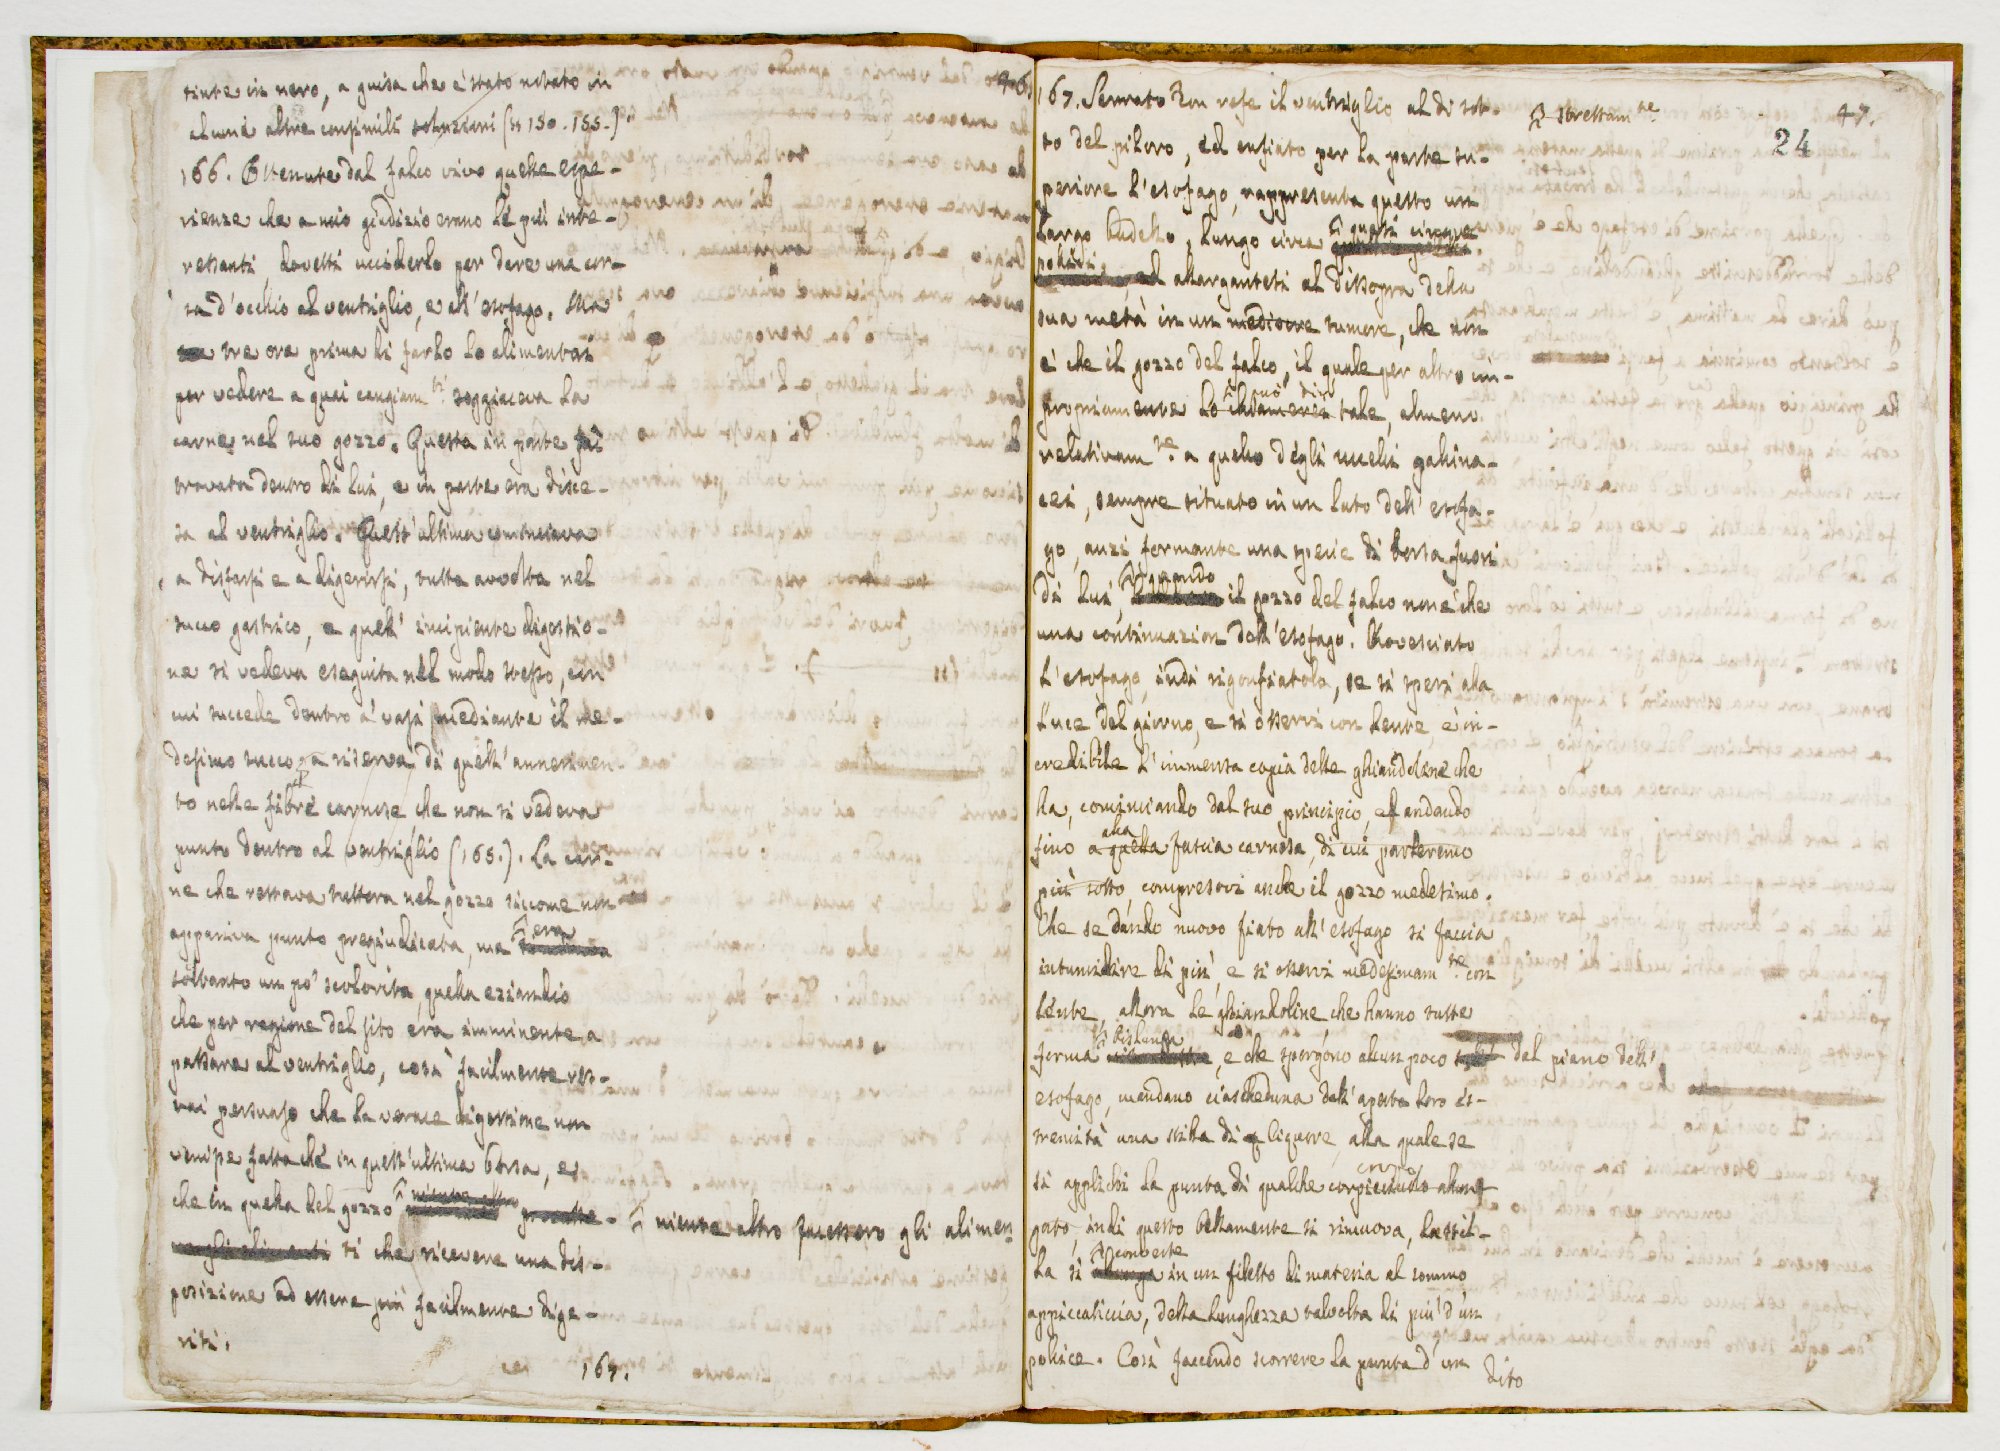 46
tinte in nero, a guisa che è stato notato in
alcune altre consimili soluzioni (n 150. 155.)
166. Ottenute dal falco vivo quelle espe-
rienze che a mio giudizio erano le più inte-
ressanti dovetti ucciderlo per dare una cor-
sa d'occhio al ventriglio, e all'esofago. Ma
tre ore prima di farlo lo alimentai
per vedere a quai cangiam.ti soggiaceva la
carne nel suo gozzo. Questa in parte fu
trovata dentro di lui, e in parte era disce-
sa al ventriglio. Quest'ultima cominciava
a disfarsi e a digerirsi, tutta avvolta nel
succo gastrico, e quell'incipiente digestio-
ne si vedeva eseguita nel modo stesso, con
cui succede dentro a' vasi mediante il me-
desimo succo, a riserva di quell'annerimen-
to nelle fibre carnose che non si vedeva
punto dentro al ventriglio (165.). La car-
ne che restava tuttora nel gozzo siccome non
appariva punto pregiudicata, ma era
soltanto un po' scolorita, quella eziandio
che per ragione del sito era imminente a
passare al ventriglio, così facilmente res-
tai persuaso che la verace digestione non
venipe fatta che in quest'ultima borsa, e
che in quella del gozzo niente altro facessero gli alimen
ti che ricevere una dis-
posizione ad essere più facilmente dige-
riti.
167.
47.
24
167. Serrato con refe strettam.te il ventriglio al di sot-
to del piloro, ed enfiato per la parte su-
periore l'esofago, rappresenta questo un
largo budello, lungo circa quasi cinque
pollici, ed allargantesi al dissopra della
sua metà in un mediocre tumore, che non
è che il gozzo del falco, il quale per altro im-
propriamente può dirsi tale, almeno
relativam.te a quello degli uccelli gallina-
cei, sempre situato in un lato dell'esofa-
go, anzi formante una specie di borsa fuori
di lui, quando il gozzo del falco non è che
una continuazion dell'esofago. Rovesciato
l'esofago, indi rigonfiatolo, se si speri alla
luce del giorno, e si osservi con lente, è in-
credibile l'immensa copia delle ghiandolene che
ha, cominciando dal suo principio, ed andando
fino alla quella fascia carnosa, di cui parleremo
più sotto, compresovi anche il gozzo medesimo.
Che se dando nuovo fiato all'esofago si faccia
intumidire di più, e si osservi medesimam.te con
lente, allora le ghiandoline, che hanno tutte
forma bislunga, e che sporgono alcun poco del piano dell'
esofago, mandano ciascheduna dall'aperta loro es-
tremità una stilla di liquore, alla quale se
si applichi la punta di qualche corpo
indi questo bellamente si rimuova, la stil-
la si converte in un filetto di materia al sommo
appiccaticcia, della lunghezza talvolta di più d'un
pollice. Così facendo scorrere la punta d'un
dito